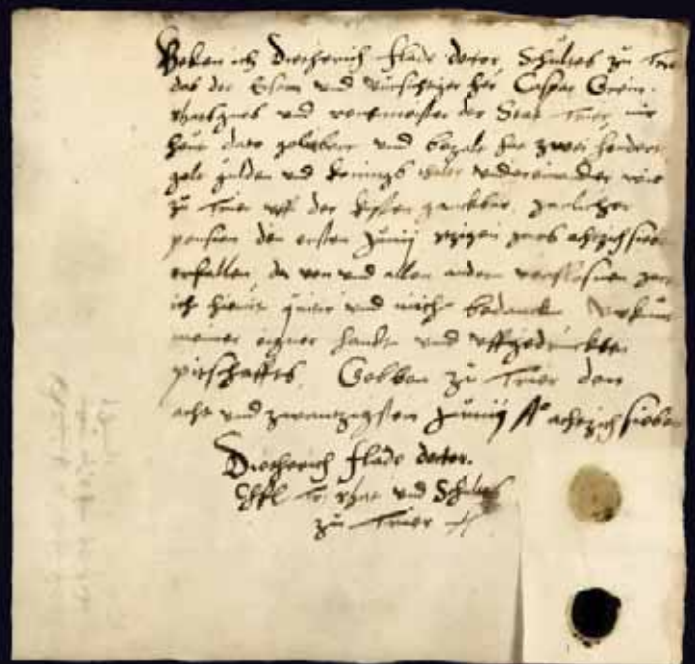 Beken ich Dietherich Flade doctor, Schultes zu Trier
das der Ersam und vursichtiger her Caspar
und rentmeister der Stat Trier, mir
heut dato geliebert und bezalt hat zwei hondert
golt gulden und konings daler undereinander wie
zu Trier uff der ganckbar, jarlicher
pension den ersten Junij jars achtzich sieben
erfallen, da von und allen andern verflossnen
ich hiemit quit und mich bedancken. Urkunt
meiner eigner handt und uffgedruckten
pitschaffts. Geben zu Trier den
acht und zwantzigsten Junij Aº achtzich sieben
Dietherich Flade doctor.
und Schultes
zu Trier